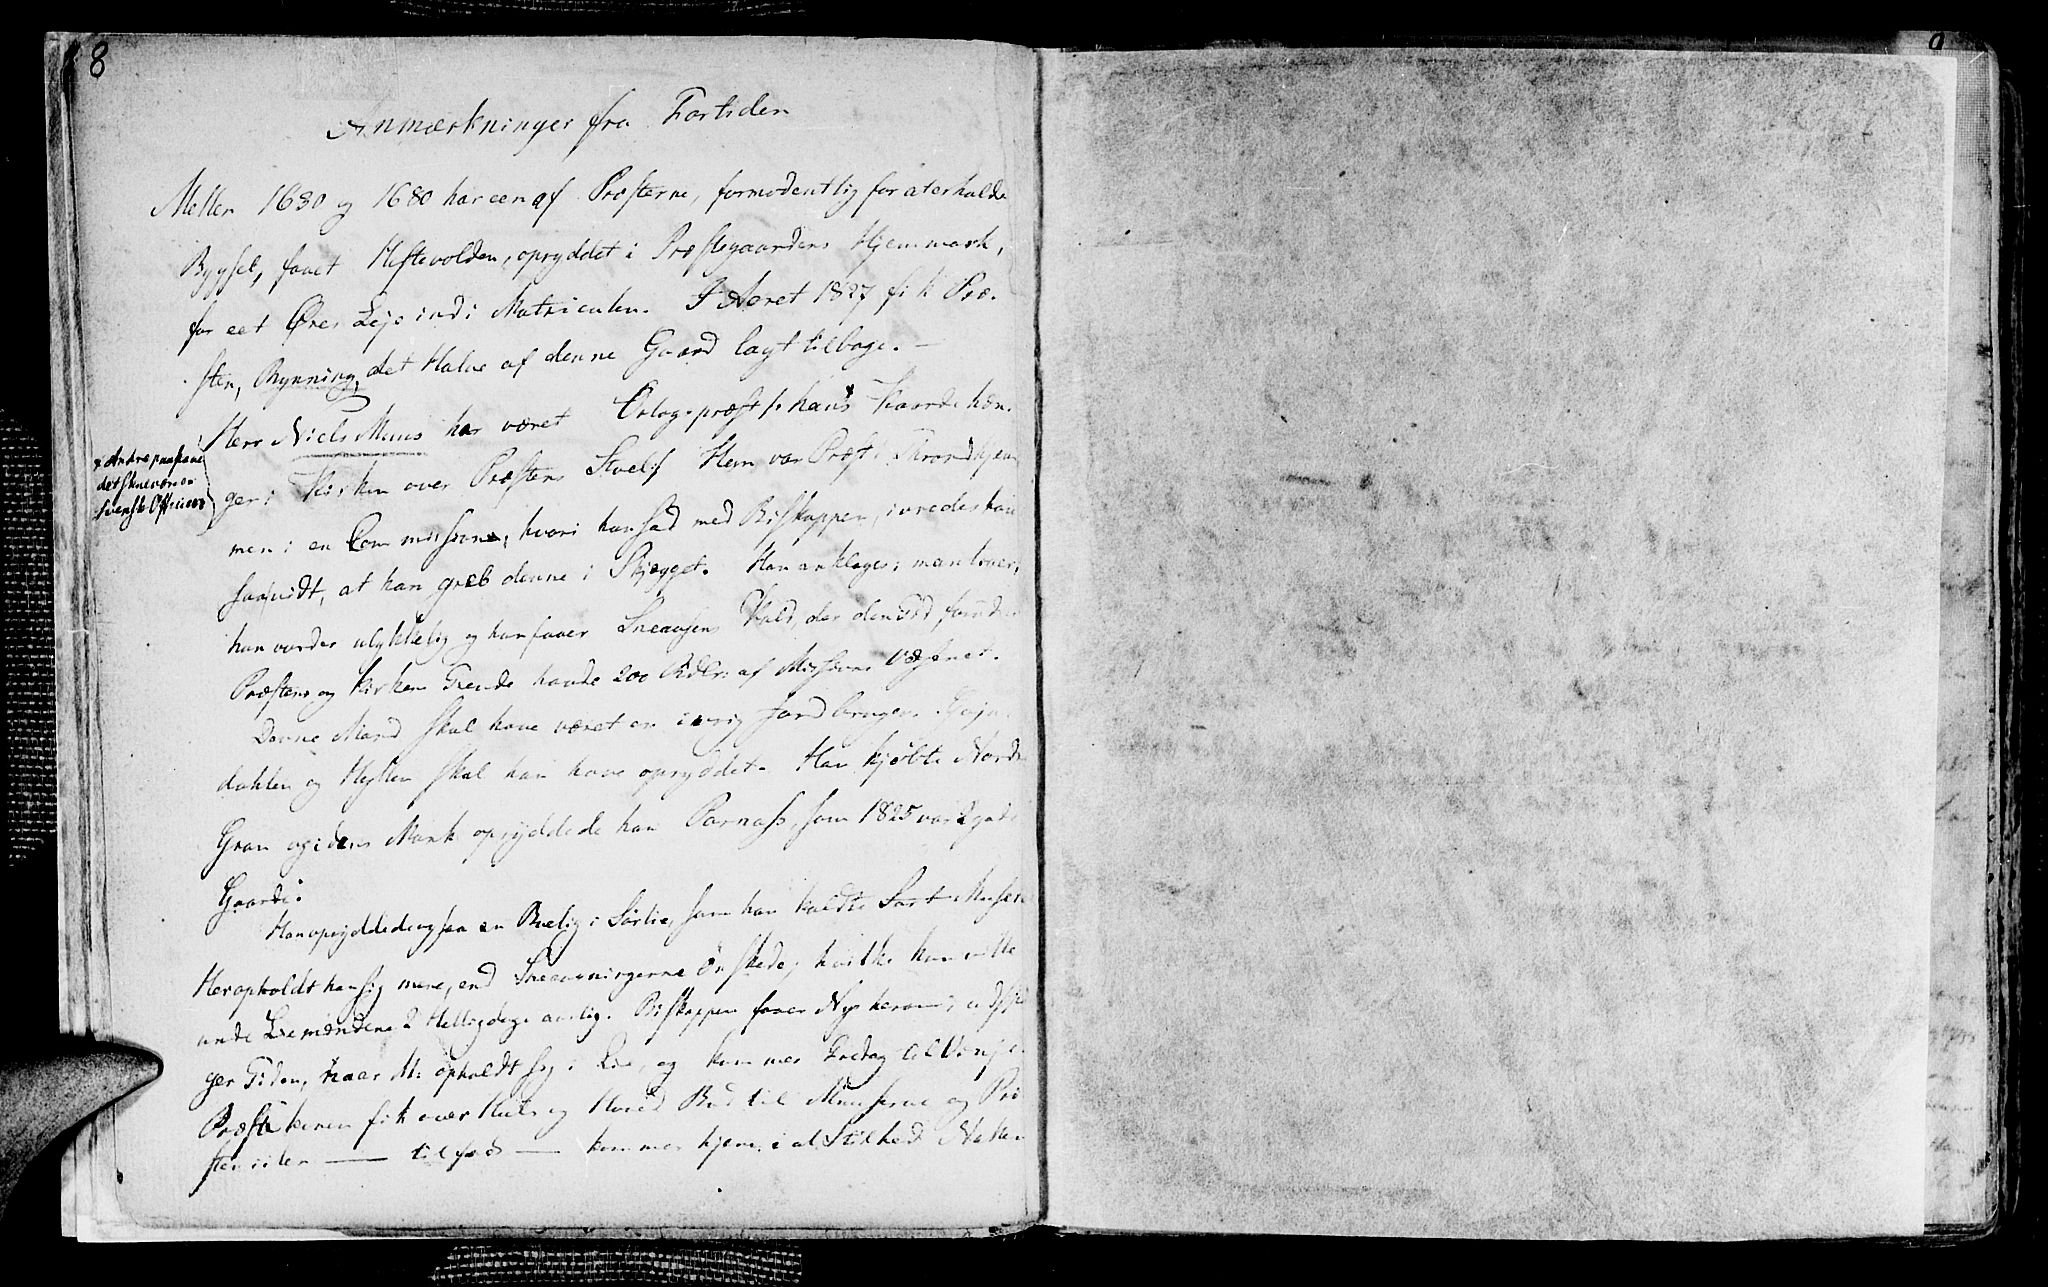 8
Anmærkninger fra Fortiden
Mellem 1630 og 1680 har een af Præsterne, formodentlig for at erholde
Bygsel, faaet Heftevolden, opryddet i Præstegaardens Hjemmark,
for eet Øres Leje ind i Matriculen. I Aaret 1827 fik Præ-
sten, Rynning, det Halve af denne Gaard lagt tilbage. —
Herr Niels Muus har været Orlogspræst, hans Kaarde hæn-
x Andre paastaae
det skue være en
svensk Officeer
ger i Kirken over Præstens Stoel. Han var Præst i Throndhjem
men i en Commission, hvori han sad med Biskoppen, vredes han
saavidt, at han greb denne i Skjægget. Han anklages; man troer,
han vorder ulykkelig og han faaer Sneaasens Kald, der den Tid foruden
Præstens og Kirken Tiende havde 200 Rdlr. af Missions Væsenet.
Denne Mand skal have været en ivrig Jordbruger.
dahlen og Heften skal han have opryddet. Han kjøbte Nordre
Gran og i dens Mark opryddede han Parnass, som 1825 var 2 gode
Gaarde.
Han opryddede ogsaa en Bolig i Sørlie, som han kaldte
Her opholdt han sig mere, end Sneaasningerne ønskede, hvilke han vilde
unde Liemændene 2 Helligdage aarlig. Biskoppen faaer Nys herom,
ger Tiden, naar M. opholdt sig i Lie, og kommer Løverdag til
Præstekonen fik over Hals og Hoved Bud til Muuserne og Præ-
sten iiler — til fods — kommer hjem i al Stilhed Natten
9